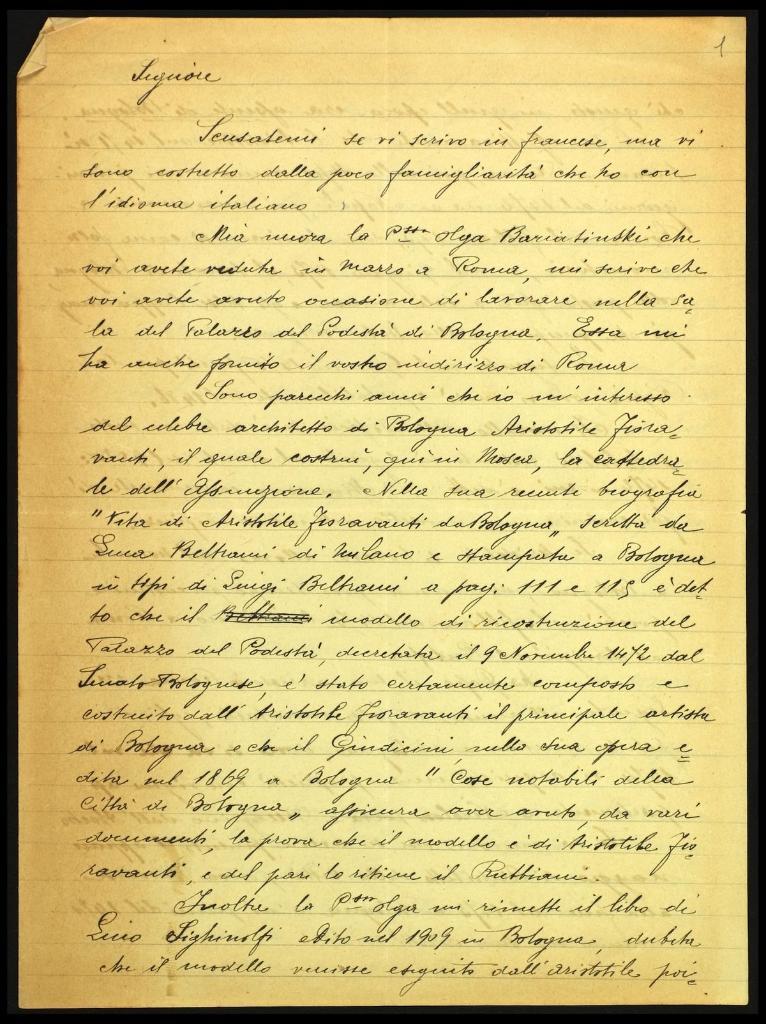 1
Signore
Scusatemi se vi scrivo in francese, ma vi
sono costretto dalla poca famigliarità che ho con
l'idioma italiano.
Mia nuora la P.ssa Olga Bariatinski che
voi avete veduta in Marzo a Roma, mi scrive che
voi avete avuto occasione di lavorare nella Sa=
la del Palazzo del Podestà di Bologna. Essa mi
ha anche fornito il vostro indirizzo di Roma
Sono parecchi anni che io m'interesso
del celebre architetto di Bologna Aristotile Fiora=
vanti, il quale costruì, qui in Mosca, la cattedra=
le dell'Assunzione. Nella sua recente biografia
"Vita di Aristotile Fioravanti da Bologna" scritta da
Luca Beltrami di Milano e stampata a Bologna
in tipi di Luigi Beltrami a pag: 111 e 115 è det=
to che il Beltrami modello di ricostruzione del
Palazzo del Podestà, decretata il 9 Novembre 1472 dal
Senato Bolognese, e' stato certamente composto e
costruito dall'Aristotile Fioravanti il principale artista
di Bologna e che il Guidicini, nella sua opera e=
dita nel 1869 a Bologna "Cose notabili della
Città di Bologna" assicura aver avuto, da vari
documenti, la prova che il modello è di Aristotile Fio=
ravanti, e del pari lo ritiene il Rubbiani.
Inoltre la P.ssa Olga mi rimette il libro di
Lino Sighinolfi edito nel 1909 in Bologna, dubita
che il modello venisse eseguito dall'Aristotile poi=